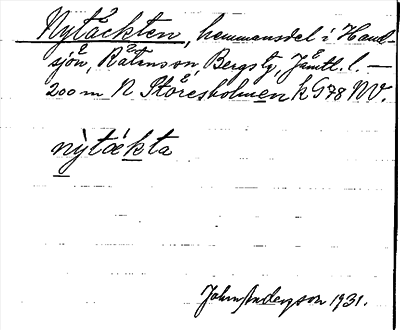 Nytäckten, hemmansdel i Hand-
sjön, Rätansson, Bergs tg, Jämtl. l. —
200 m N Storesholmen k G78 NV.
nỳtækta
John Anderson 1931.